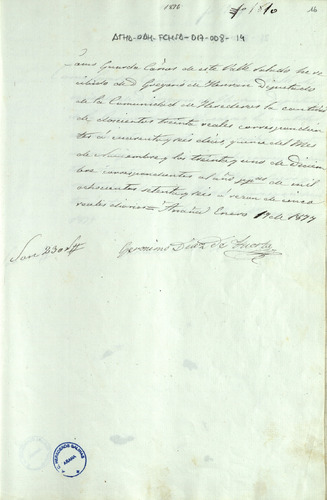 1876
16
ATHA-DAH-FCHSA-D17-008-19
Como Guarda Cañas de este Valle Salado he re-
cibido de D Gregorio de Herrera Diputado
de la Comunidad de Herederos la cantidad
de doscientos treinta reales correspondien-
tes á cuarenta y seis dias, quince del Mes
de Noviembre y los treinta y uno de Diciem-
bre correspondientes al año ppdo de mil
ochocientos setenta y seis á razon de cinco
reales diarios = Añana Enero 17 de 1877
Son 230 rs
Geronimo Diaz de Tuesta
ANANA